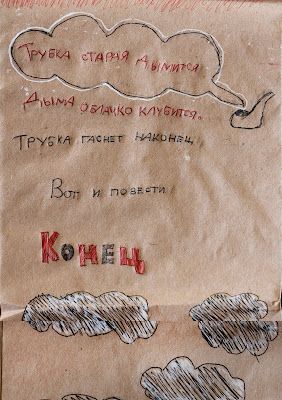 Трубка старая дымится
Дыма облачко клубится.
Трубка гаснет наконец,
Вот и повести
Конец